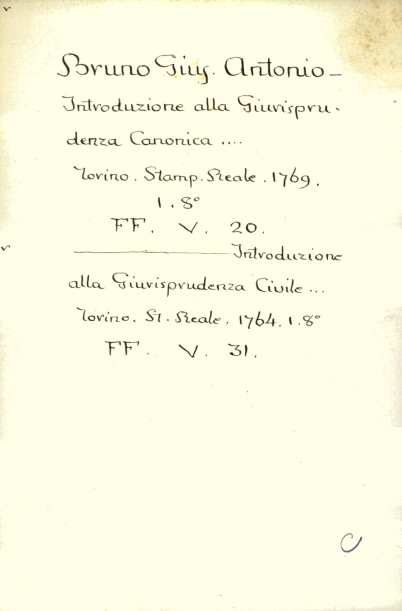 Bruno Gius. Antonio –
Introduzione alla Giurispru-
denza Canonica ....
Torino. Stamp. Reale. 1769.
1. 8°
FF. V. 20.
——— Introduzione
alla Giurisprudenza Civile ...
Torino. St. Reale. 1764. 1. 8°
FF. V. 31.
C